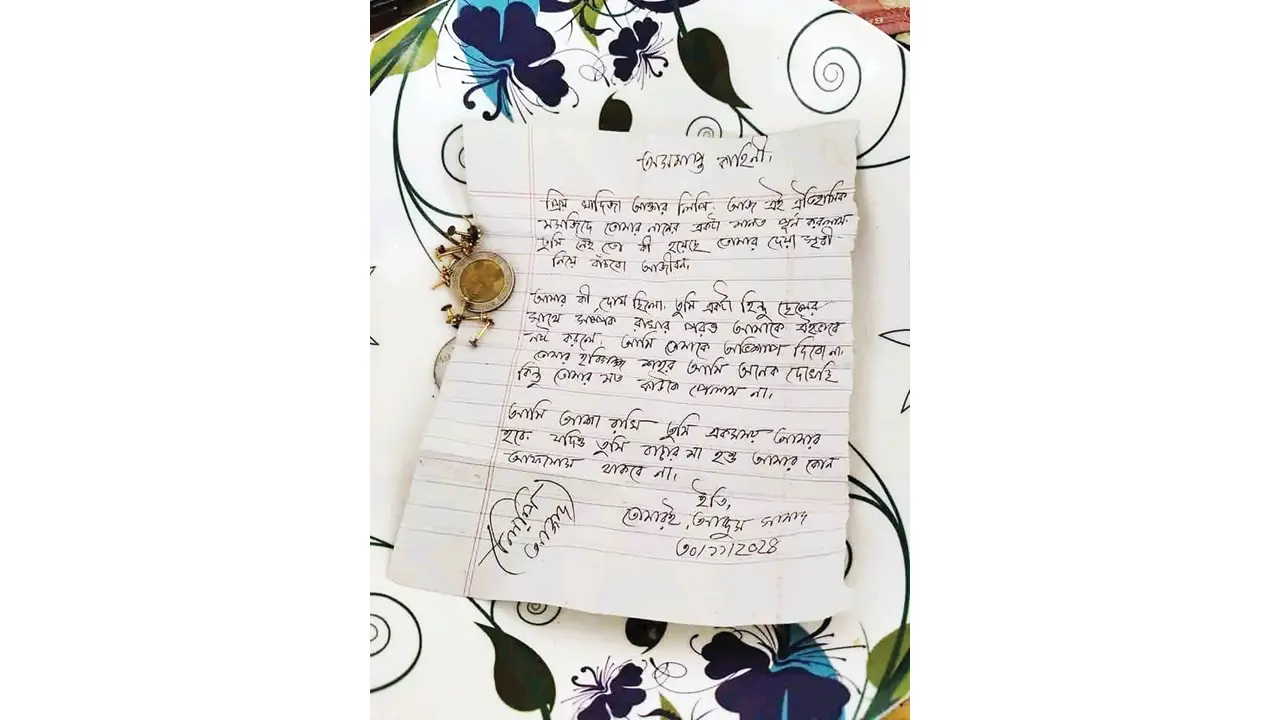 অসমাপ্ত কাহিনী।
প্রিয় খাদিজা আক্তার লিপি, আজ এই ঐতিহাসিক
মসজিদে তোমার নামের একটা মানত পূর্ন করলাম
তুমি নেই তো কী হয়েছে তোমার দেয়া স্মৃতী
নিয়ে বাঁচবো আজীবন।
আমার কী দোষ ছিলো, তুমি একটা হিন্দু ছেলের
সাথে সর্ম্পক রাখার পরও আমাকে এইভাবে
নষ্ট করলে, আমি তোমাকে অভিশাপ দিবো না,
তোমার শহর আমি অনেক দেখেছি
কিন্তু তোমার মত কাউকে পেলাম না।
আমি আশা রাখি তুমি একসময় আমার
হবে, যদিও তুমি বাচ্চার মা হও আমার কোন
আফসোস থাকবে না।
ইতি,
তোমারই, আব্দুস সামাদ
৩০/১১/2০২৪
লিপি